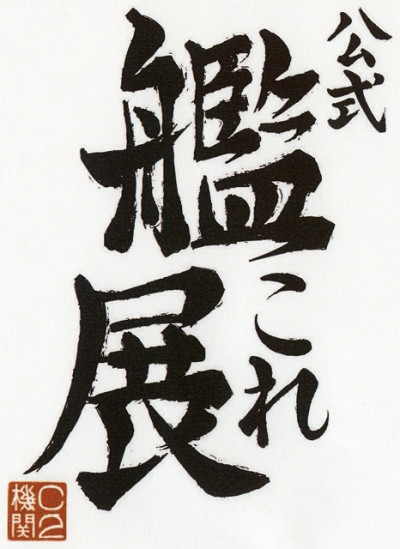 公式
艦これ
展
C2
機関